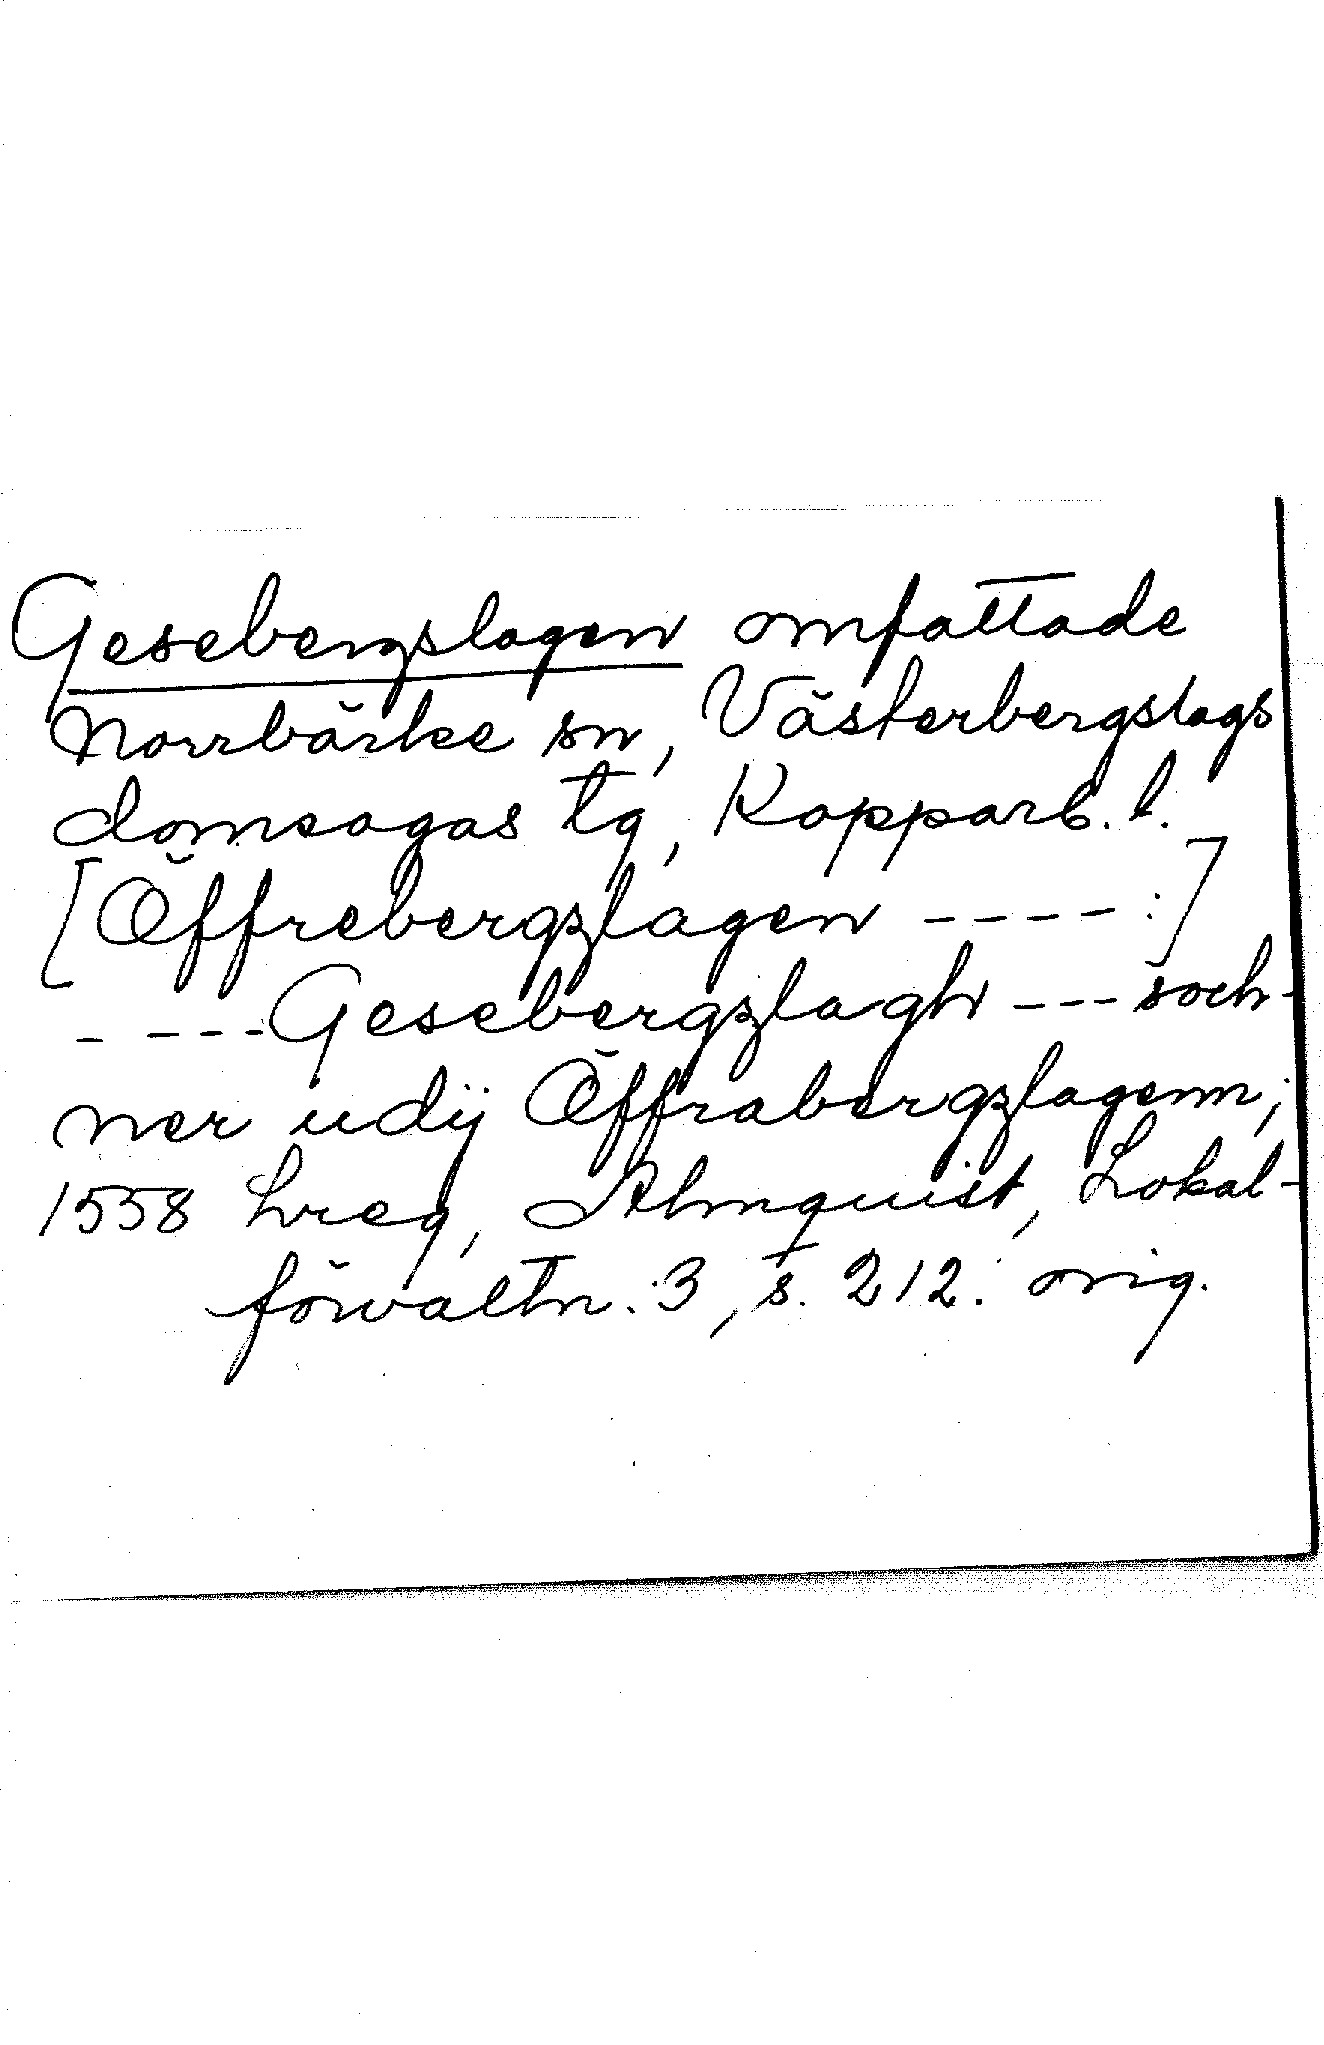 Gesebergslagen omfattade
Norrbärke sn, Västerbergslags
domsagas tg, Kopparb. l.
[Öffrebergzlagen ---- :]
- ---Gesebergzlagh --- soch-
ner udij Öffrabergzlagenn;
1558 Lreg, Almquist, Lokal-
förvaltn. 3, s. 212. orig.